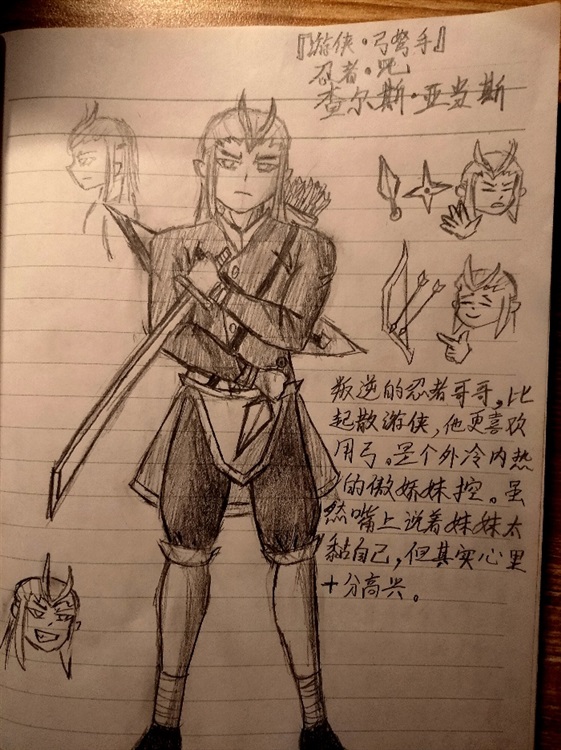 『游侠·弓弩手』
忍者·咒
查尔斯·亚当斯
叛逆的忍者哥哥，比
起散游侠，他更喜欢
用弓。是个外冷内热
的傲娇妹控。虽
然嘴上说着妹妹太
黏自己，但其实心里
十分高兴。